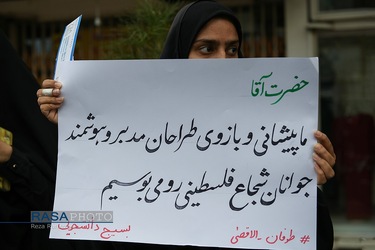 حضرت آقا
ما پیشانی و بازوی طراحان مدبر و هوشمند
جوانان شجاع فلسطینی رو می بوسیم
#طوفان_الاقصی
بسیج دانشجویی
RASA PHOTO